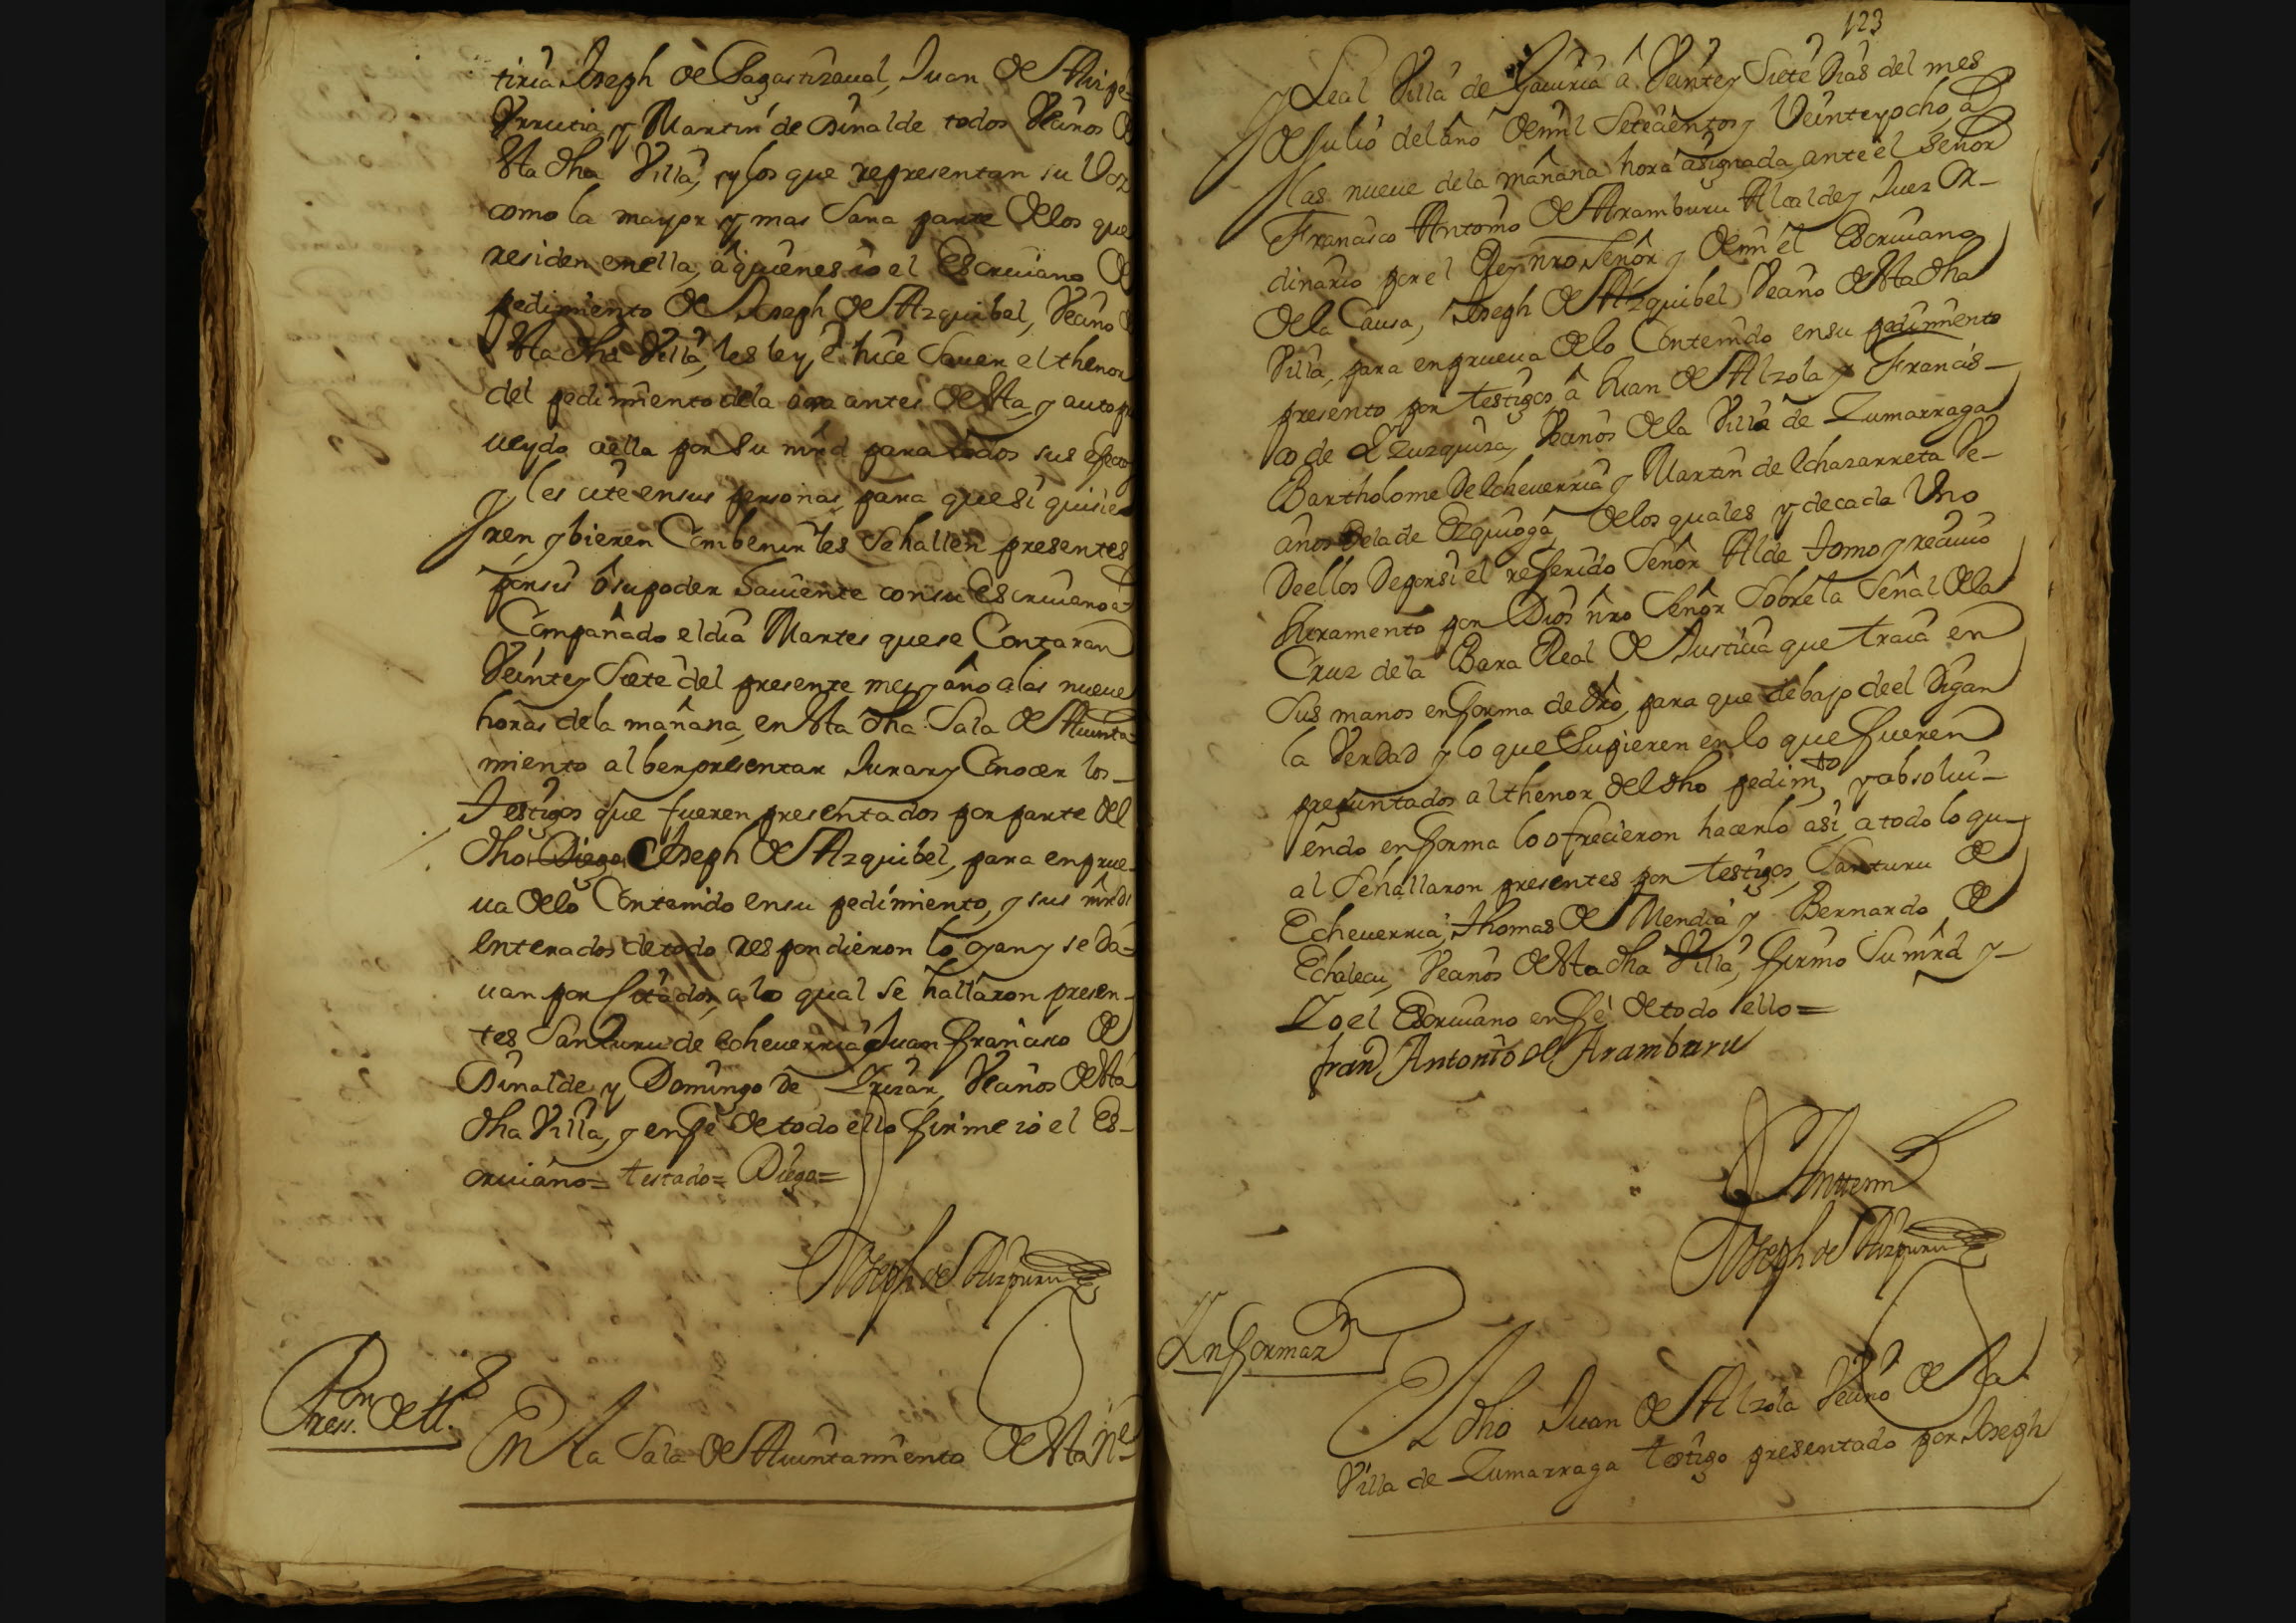 tiria Joseph de Sagastizaual, Juan de Aizpe
Vrrutia, y Martin de Oinalde todos Veçinos de
esta dha Villa, y los que representan su Voz
como la mayor y mas Sana parte de los que
residen en ella, a quienes io el Escriuano de
pedimiento de Joseph de Azquibel, Veçino de
esta dha Villa, les ley, é hiçe Sauer el thenor
del pedimiento de la oja antes de esta, y auto pr
ueydo a ella por Su mrd para todos sus efectos
y les çite en sus personas, para que Si quisie
ren y bieren Combenirles Se hallen presentes
por si ô su poder hauiente con su Escriuano a
Compañado el dia Martes que se Contaran
Veinte y Siete del presente mes y año a las nueue
horas de la mañana, en esta dha Sala de Aiunta
miento al ber presentar Jurar y Conocer los
Testigos que fueren presentados por parte del
dho Diego Joseph de Azquibel, para en prue
ua de lo Contenido en su pedimiento, y sus mrds
enterados de todo respondieron lo oyan y se da
uan por Citados, a lo qual Se hallaron presen
tes Santuru de echeuerria Juan Françisco de
Oinalde y Domingo de Irizar, Veçinos de esta
dha Villa, y en fe de todo ello firme io el Es
criuano = testado = Diego =
Joseph de Aizpuru
Presn. de tts.
En la Sala de Aiuntamiento de esta Ne.
123
y Leal Villa de Gauiria â Veinte y Siete dias del mes
de Julio del año de mil Seteçientos y Veinte y ocho, a
las nueue de la mañana hora asignada, ante el Señor
Françisco Antonio de Aramburu Alcalde y Juez Or
dinario por el Rey nro Señor y de mi el Escriuano
de la Causa, Joseph de Azquibel Veçino de esta dha
Villa, para en prueua de lo Contenido en su pedimiento
presento por testigos â Juan de Alzola y Françis
co de Ezurquiza, Veçinos de la Villa de Zumarraga
Bartholome de echeuerria y Martin de echazarreta Ve
çinos de la de Ezquioga, de los quales y de cada Vno
de ellos de por si el referido Señor Alde tomo y recuio
Juramento por Dios nro Señor Sobre la Señal de la
Cruz de la Bara Real de Justiçia que traia en
Sus manos en forma de dro, para que debajo de el digan
la Verdad y lo que Supieren en lo que fueren
preguntados al thenor del dho pedimto, y absolui
endo en forma lo ofreçieron hacerlo asi, a todo lo qu
al Se hallaron presentes por testigos, Santuru de
Echeuerria, Thomas de Mendia y Bernardo de
Echaleçu, Veçinos de esta dha Villa, firmo Su mrd y
Yo el Escriuano en fe de todo ello =
Frano Antonio de Aramburu
Ante mi
Joseph de Aizpuru
Informazn
El dho Juan de Alzola Veçino de la
Villa de Zumarraga testigo presentado por Joseph